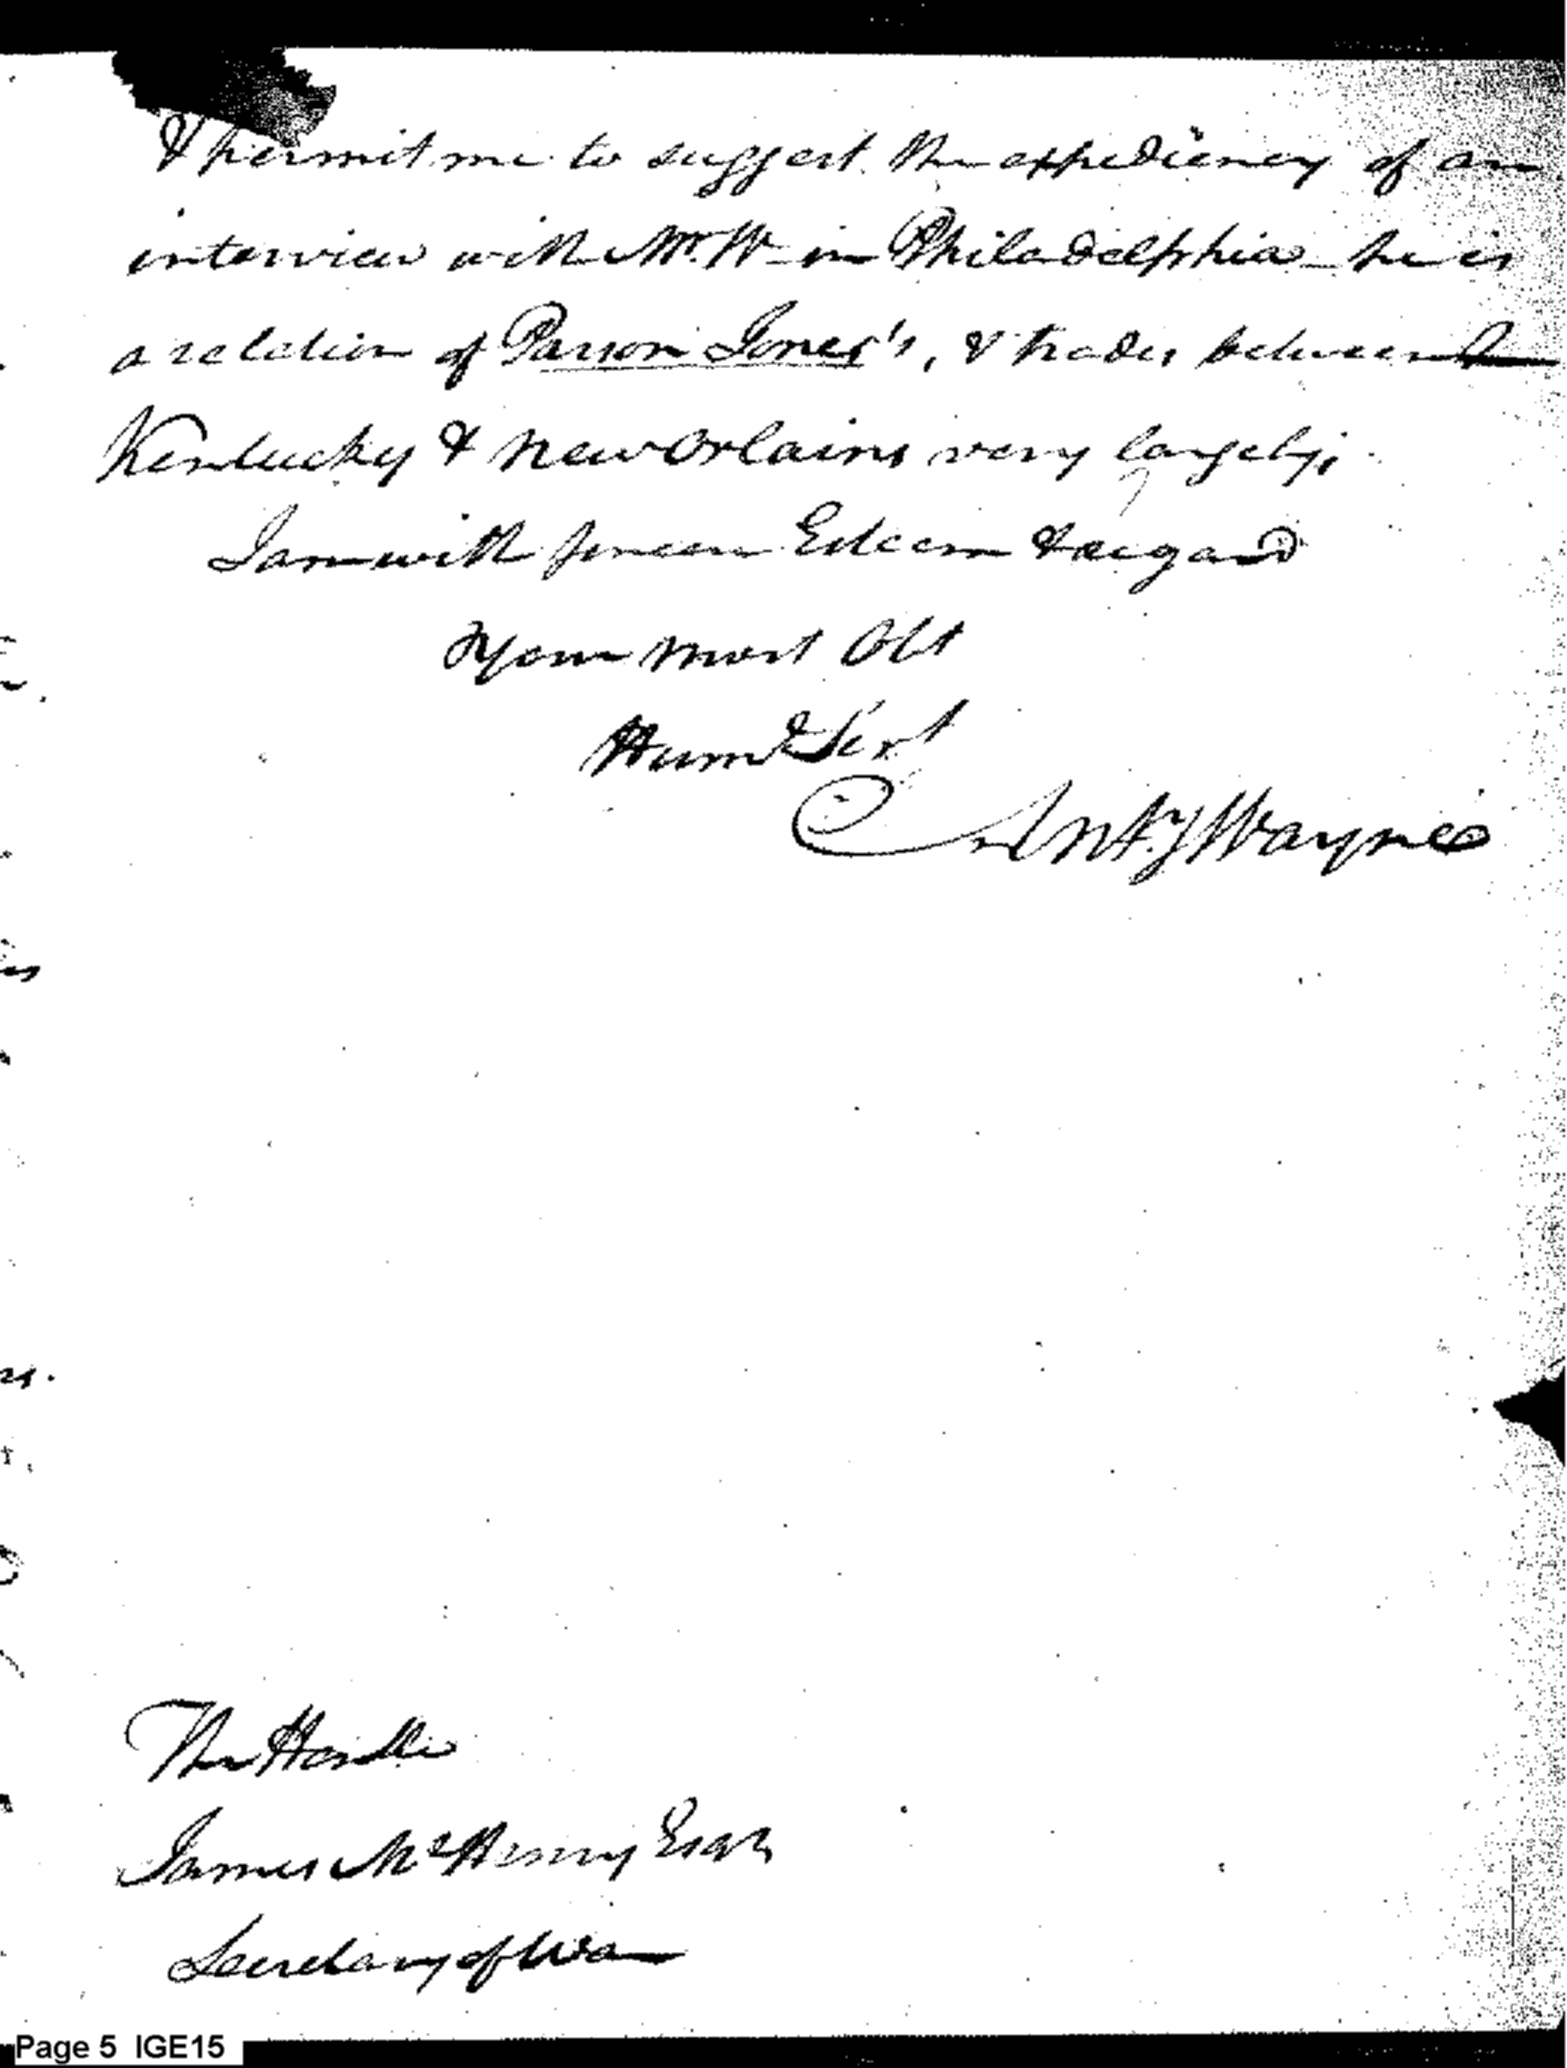 & permit me to suggest the expediency of an
interview with Mr. W- in Philadelphia - he is
a relation of Parson Jones's, & trades between
Kentucky & New Orlains very largely;
I am with sincere Esteem & regard
Your most Obt
Humle Sert
Anty Wayne
The Honble
James McHenry Esqr
Secretary of War
Page 5 IGE15